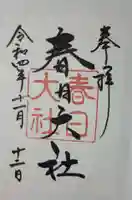 奉拝
春日大社
春日
大社
令和四年十一月
十二日